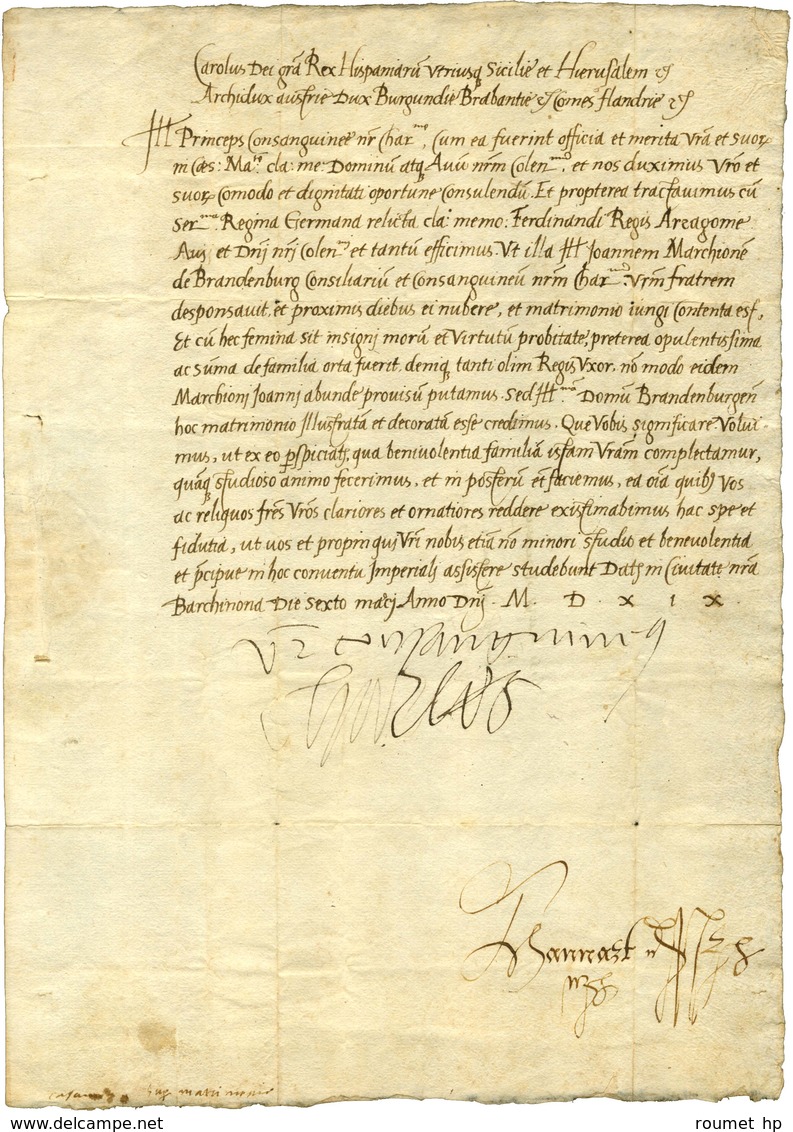 Carolus Dei gra Rex Hispaniarũ utriusq Sicilie et Hierusalem &c
Archidux austrie Dux Burgundie Brabantie &c Comes Flandrie &c
Ill Princeps Consanguineẽ nr̃ Charmo, Cum ea fuerint officia et merita vr̃a et suorꝝ
in Cæs: Matem cla: me: Dominũ atq Avũ nr̃m Colenmo, et nos duximus vr̃o et
suorꝝ comodo et dignitati oportune consulendũ. Et propterea tractavimus cũ
Serma Regina Germana relicta cla: memo: Ferdinandi Regis Aragonie
Avi et Dnj nr̃j colenmi et tantũ efficimus. Vt illa Ill Joannem Marchionẽ
de Brandenburg Consiliariũ et Consanguineũ nr̃m Charmo. Vr̃m fratrem
desponsavit, et proximis diebus ei nubere, et matrimonio iungi contenta est,
Et cũ hec femina sit insignj morũ et Virtutũ probitate, preterea opulentissima
ac sũma de familia orta fuerit, deniq tanti olim Regis Vxor, nõ modo eidem
Marchioni Joannj abunde provisũ putamus. sed Illma Domũ Brandenburgeñ
hoc matrimonio Illustratã et decoratã esse credimus. Que Vobis significare Volui
mus, ut ex eo pspiciatis, qua benivolentia familiã istam Vram complectamur,
quãq studioso animo fecerimus, et in posterũ et faciemus, ea oĩa quibꝫ Vos
ac reliquos fres Vros clariores et ornatiores reddere existimabimus hac spe et
fidutia, ut vos et propinqui Vri nobis etiã nõ minori studio et benevolentia
et pcipue in hoc conventu Imperiali assistere studebunt Datis in Civitate nra
Barchinona Die sexto marcij Anno Dnj. M. D X I X.
Vr consanguineus
Charles
Hannart
matrimonio
roumet hp